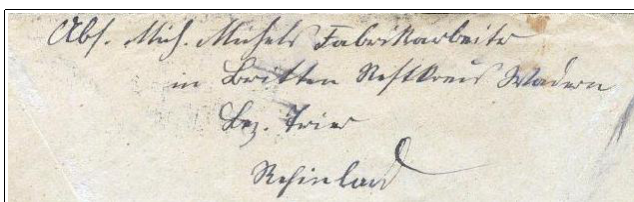 Abs. Mich. Michels Fabrikarbeiter
in Britten Restkreis Wadern
Bez. Trier
Rheinland